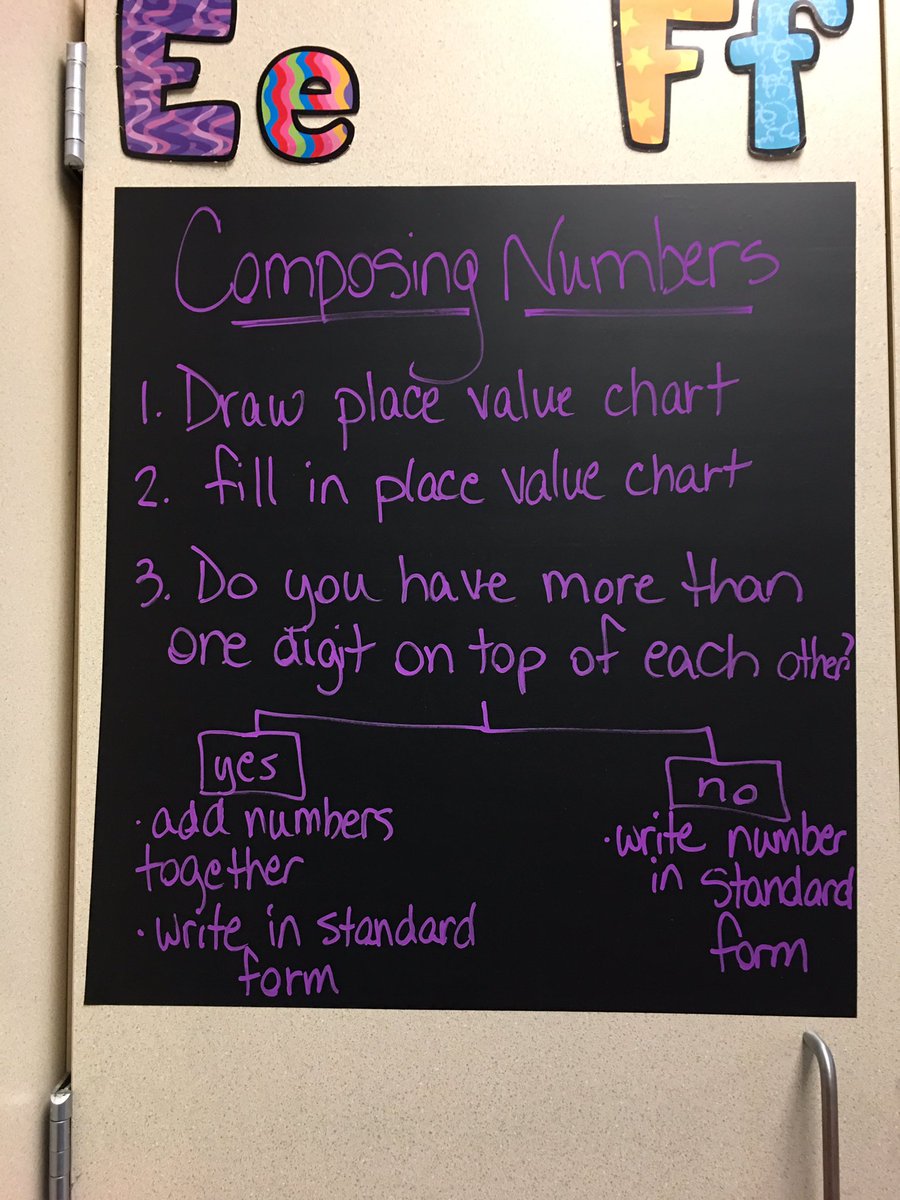 Ee Ff
Composing Numbers
1. Draw place value chart
2. fill in place value chart
3. Do you have more than
one digit on top of each other?
yes
• add numbers
together
• write in standard
form
no
• write number
in standard
form